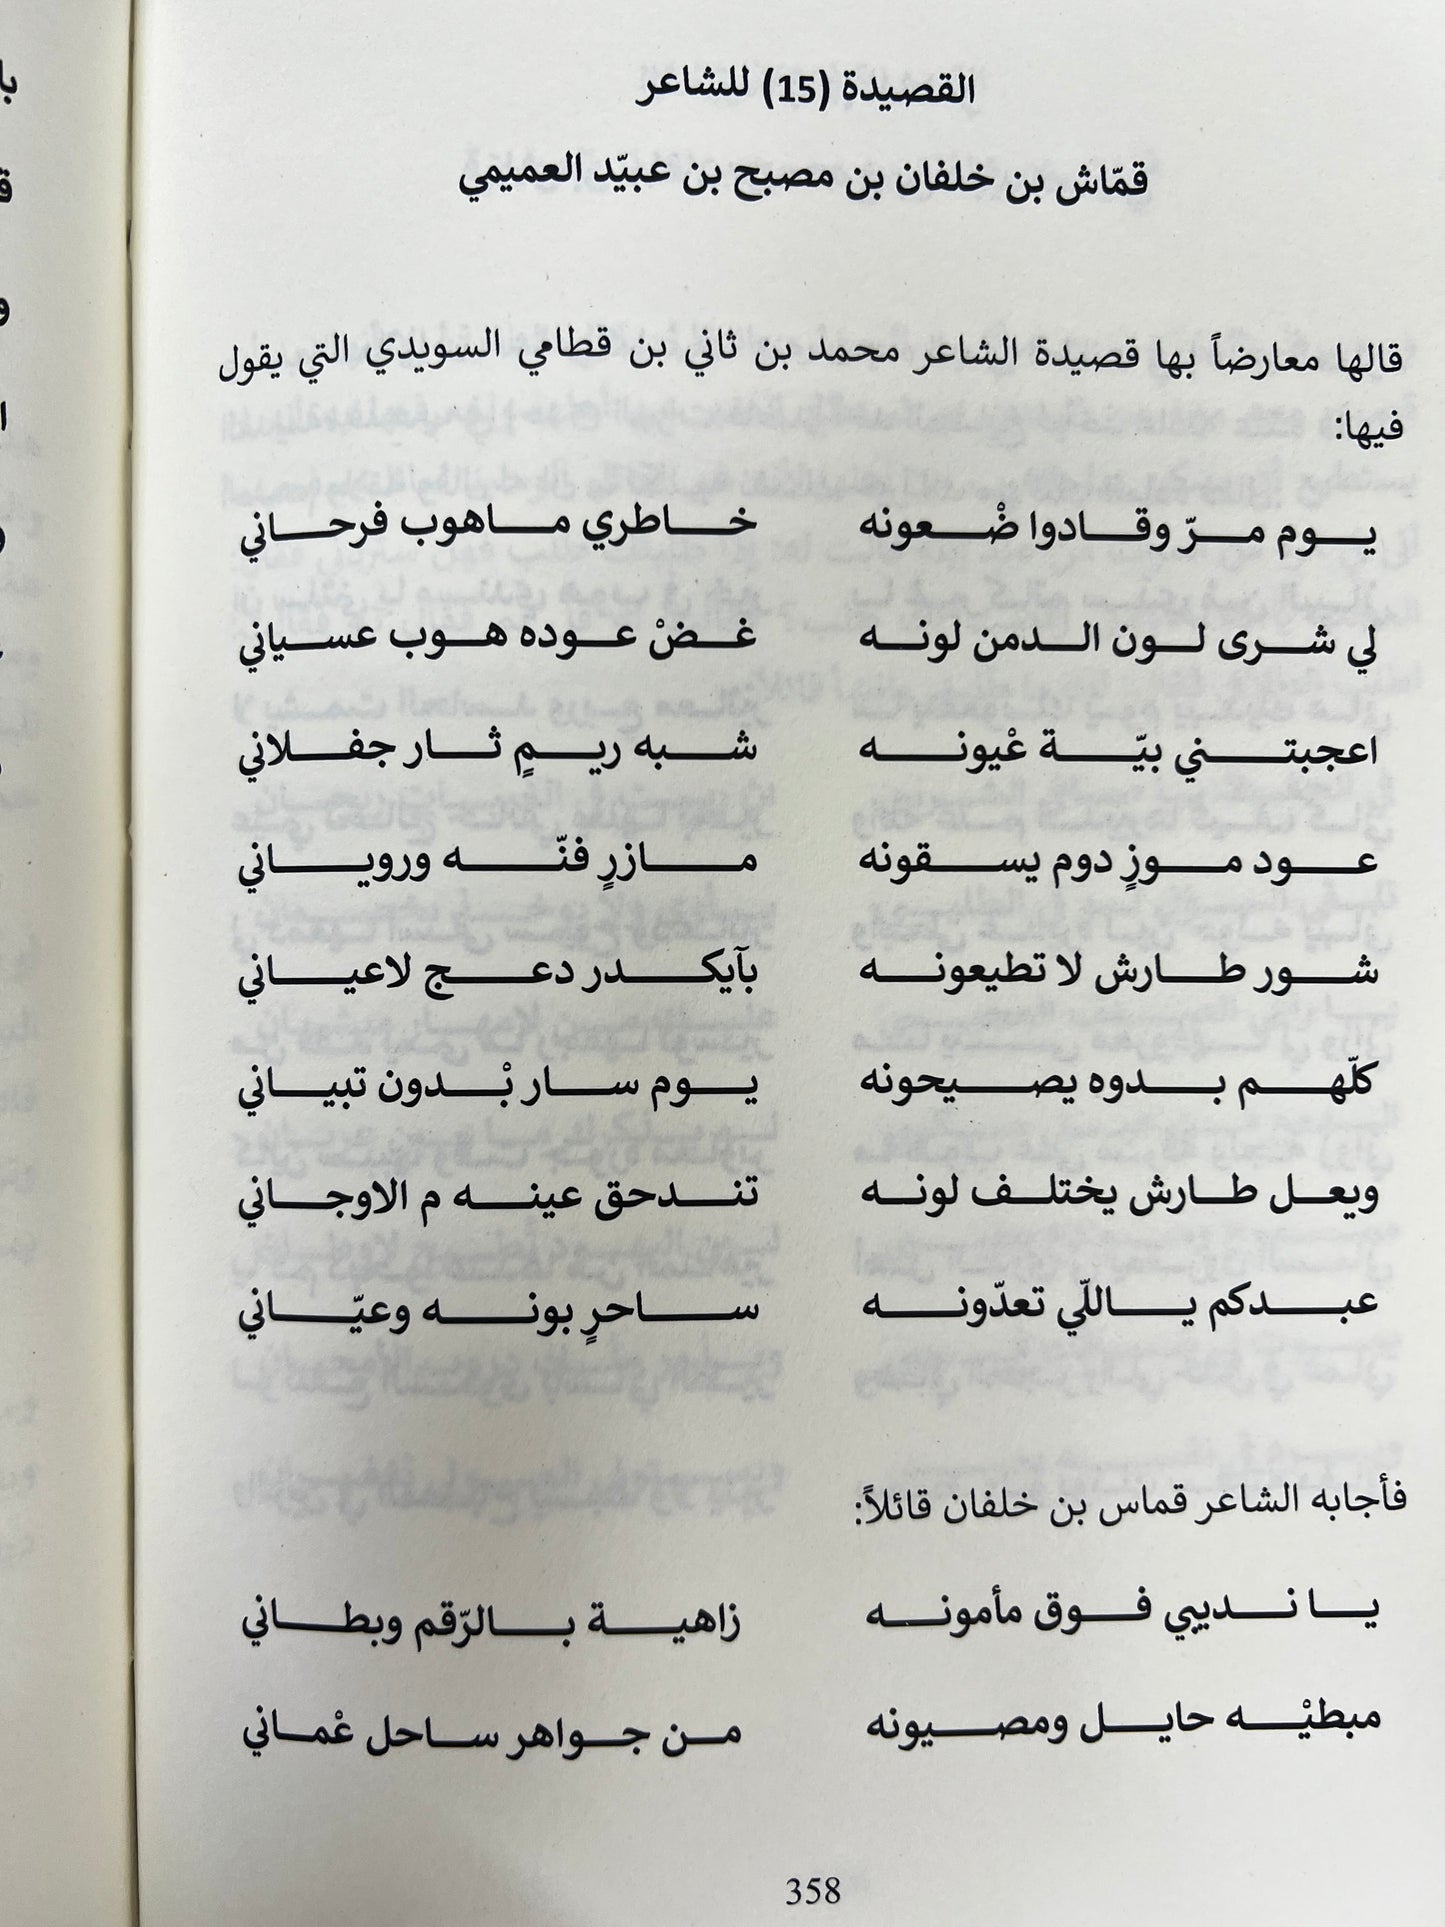 القصيدة (15) للشاعر
قمّاش بن خلفان بن مصبح بن عبيّد العميمي
قالها معارضاً بها قصيدة الشاعر محمد بن ثاني بن قطامي السويدي التي يقول
فيها:
يوم مرّ وقادوا ضْعونه خاطري ماهوب فرحاني
لي شرى لون الدمن لونه غضْ عوده هوب عسياني
اعجبتني بيّة عْيونه شبه ريمٍ ثار جفلاني
عود موزٍ دوم يسقونه مازرٍ فنّه ورويـاني
شور طارش لا تطيعونه بآيكدر دعج لاعياني
كلّهم بدوه يصيحونه يوم سار بْدون تبياني
ويعل طارش يختلف لونه تندحق عينه م الاوجاني
عبدكم ياللّي تعدّونه ساحرٍ بونه وعيّاني
فأجابه الشاعر قماس بن خلفان قائلاً:
يا نديبي فوق مأمونه زاهية بالرّقم وبطاني
مبطيْه حايل ومصيونه من جواهر ساحل عْماني
358